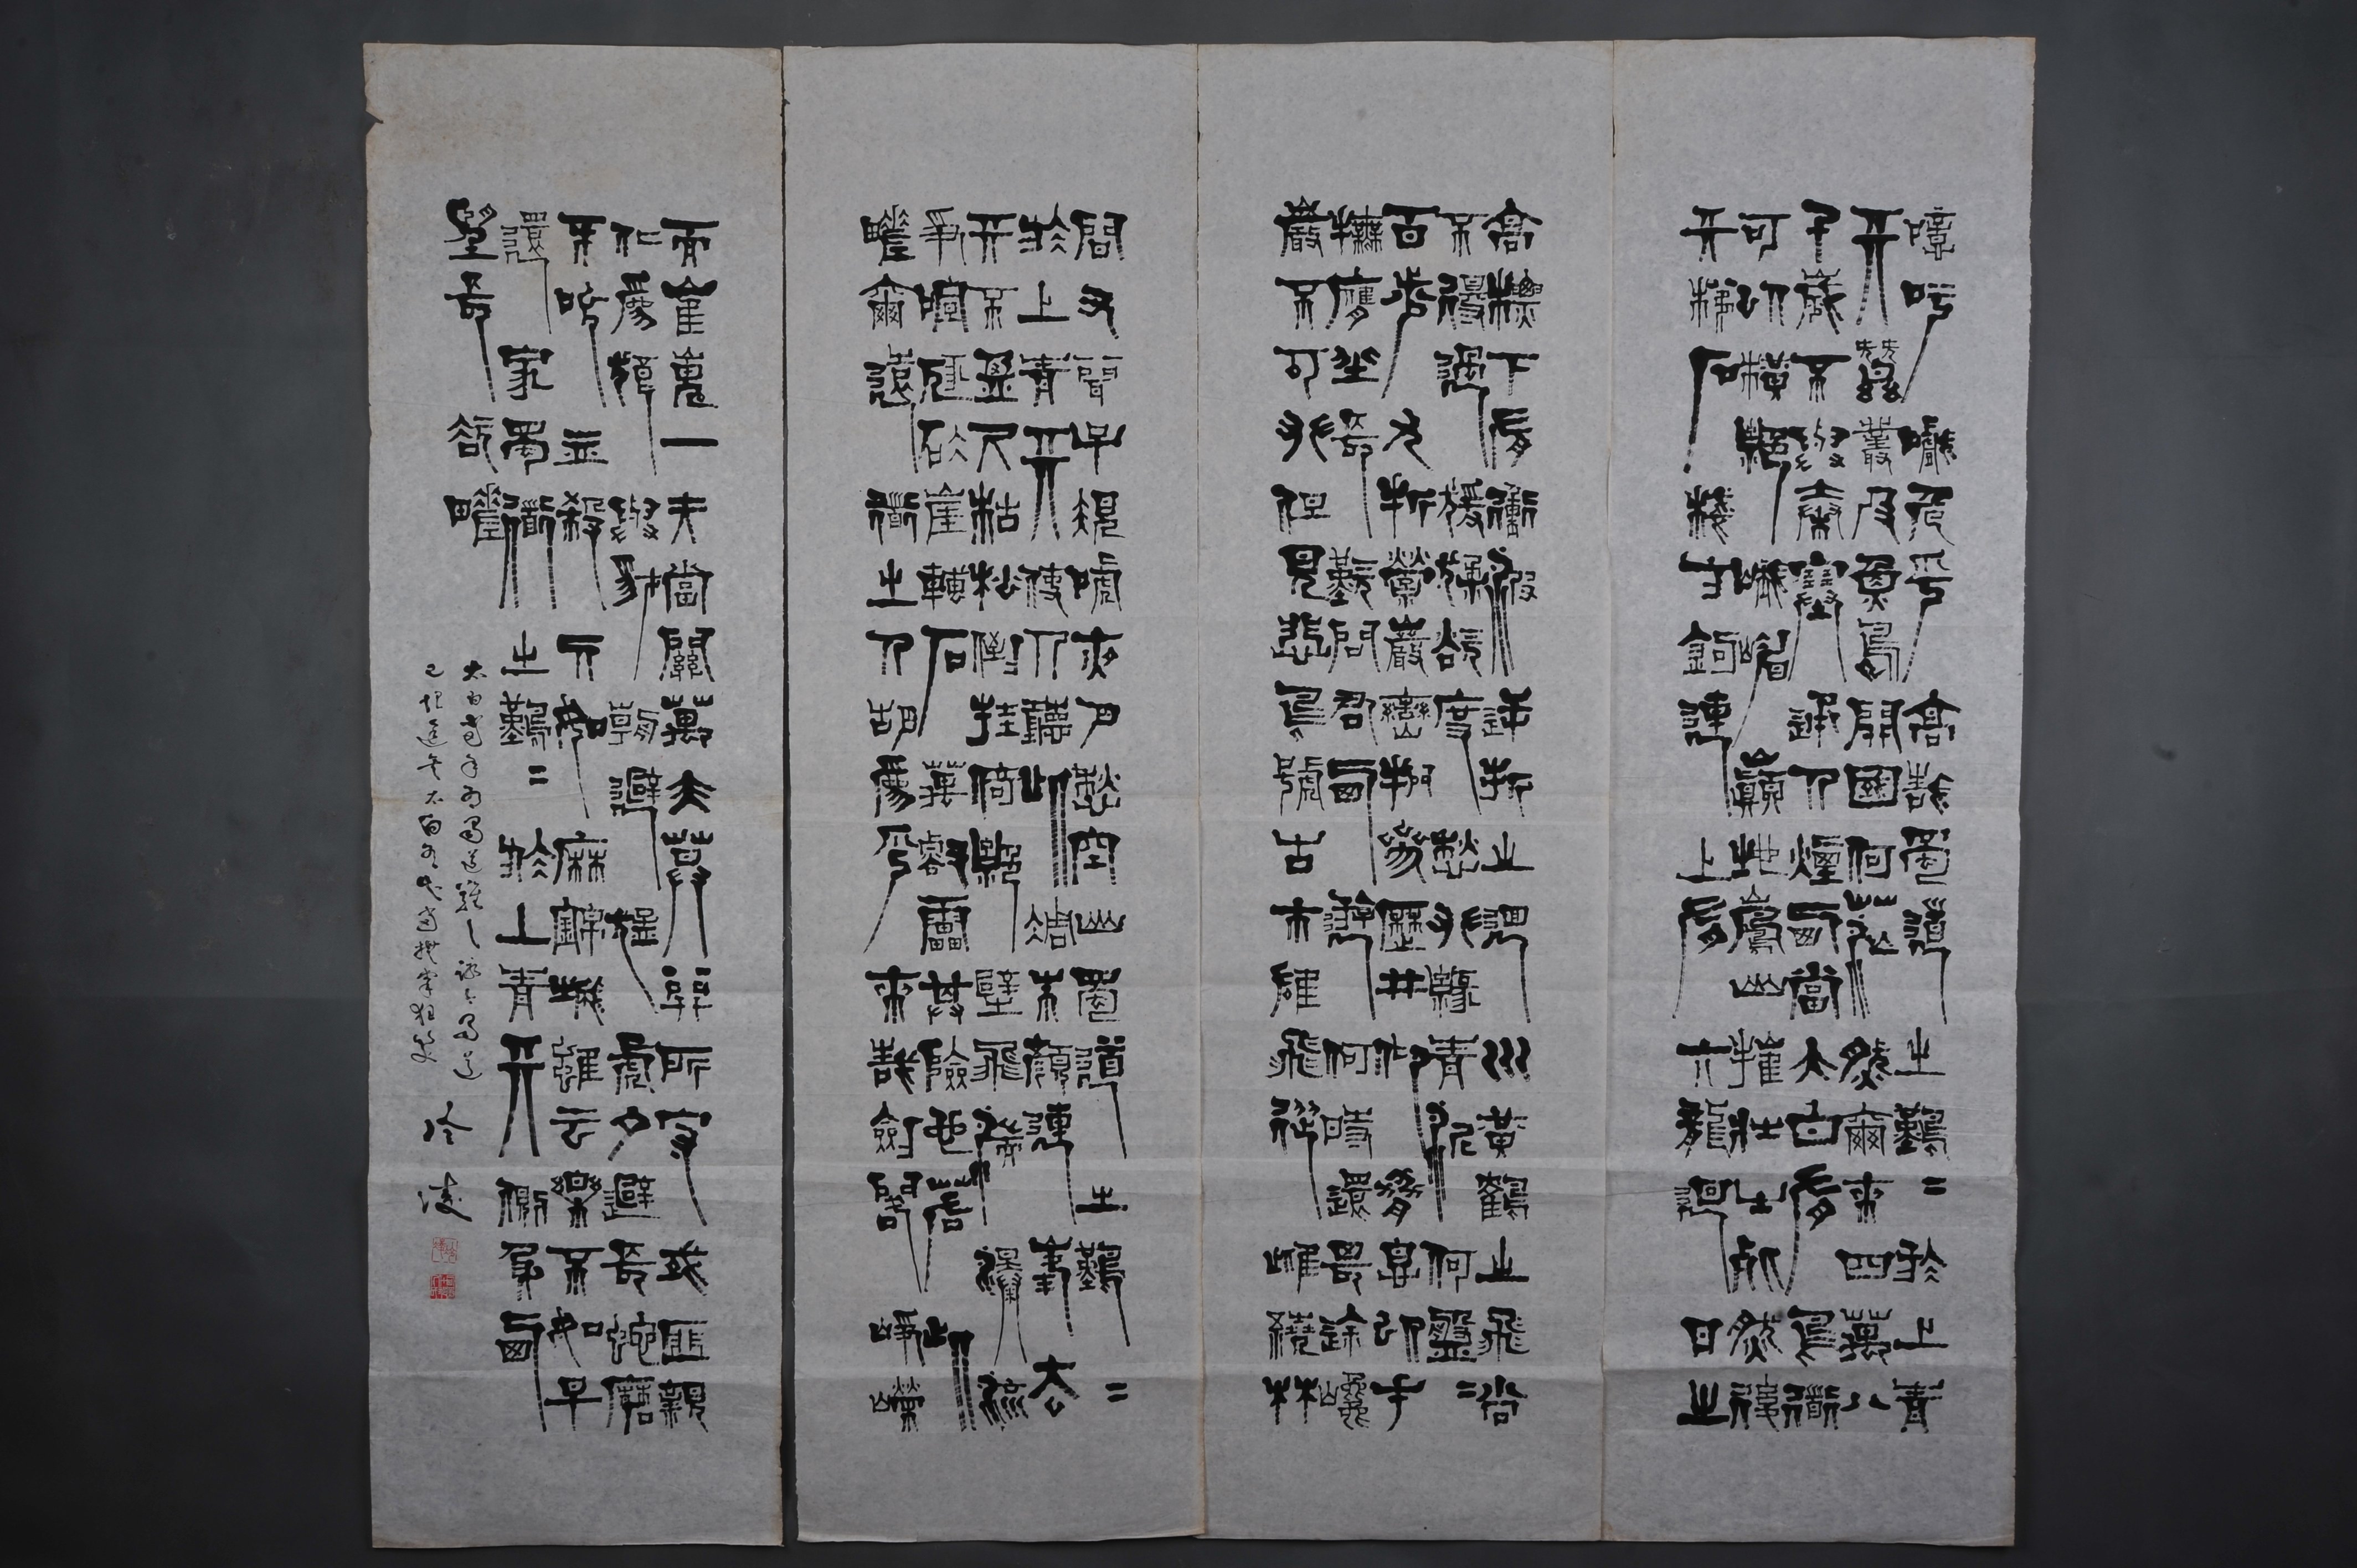 噫吁嚱危乎高哉蜀道之難=於上青
天蠶叢及魚鳧開國何茫然爾來四萬八
千歲不與秦塞通人煙西當太白有鳥道
可以橫絕峨嵋巔地崩山摧壯士死然後
天梯石棧方鉤連上有六龍迴日之
高標下有衝波逆折之迴川黃鶴之飛尚
不得過猨猱欲度愁攀緣青泥何盤=
百步九折縈巖巒捫參歷井仰脅息以手
撫膺坐長歎問君西遊何時還畏途巉
巖不可攀但見悲鳥號古木雄飛從雌繞林
間又聞子規啼夜月愁空山蜀道之難=
於上青天使人聽此凋朱顏連峰去
天不盈尺枯松倒挂倚絕壁飛湍瀑流
爭喧豗砯崖轉石萬壑雷其險也若此
嗟爾遠道之人胡為乎來哉劍閣崢嶸
而崔嵬一夫當關萬夫莫開所守或匪親
化為狼與豺朝避猛虎夕避長蛇磨
牙吮血殺人如麻錦城雖云樂不如早
還家蜀道之難=於上青天側身西
望長咨嗟
太白當年為蜀道難之詠今蜀道
已坦途矣太白有知當撫掌狂笑